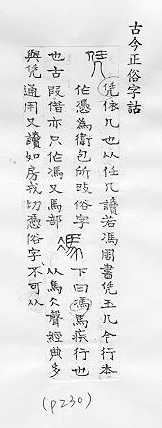 古今正俗字詁
凭
凭依几也从任几讀若馮周書凭玉几今行本
作憑為衛包所改俗字
也古叚借亦只作馮又馬部
馮
下曰馮馬疾行也
从馬冫聲經典多
與凭通用又讀如房戎切憑俗字不可从
(P230)